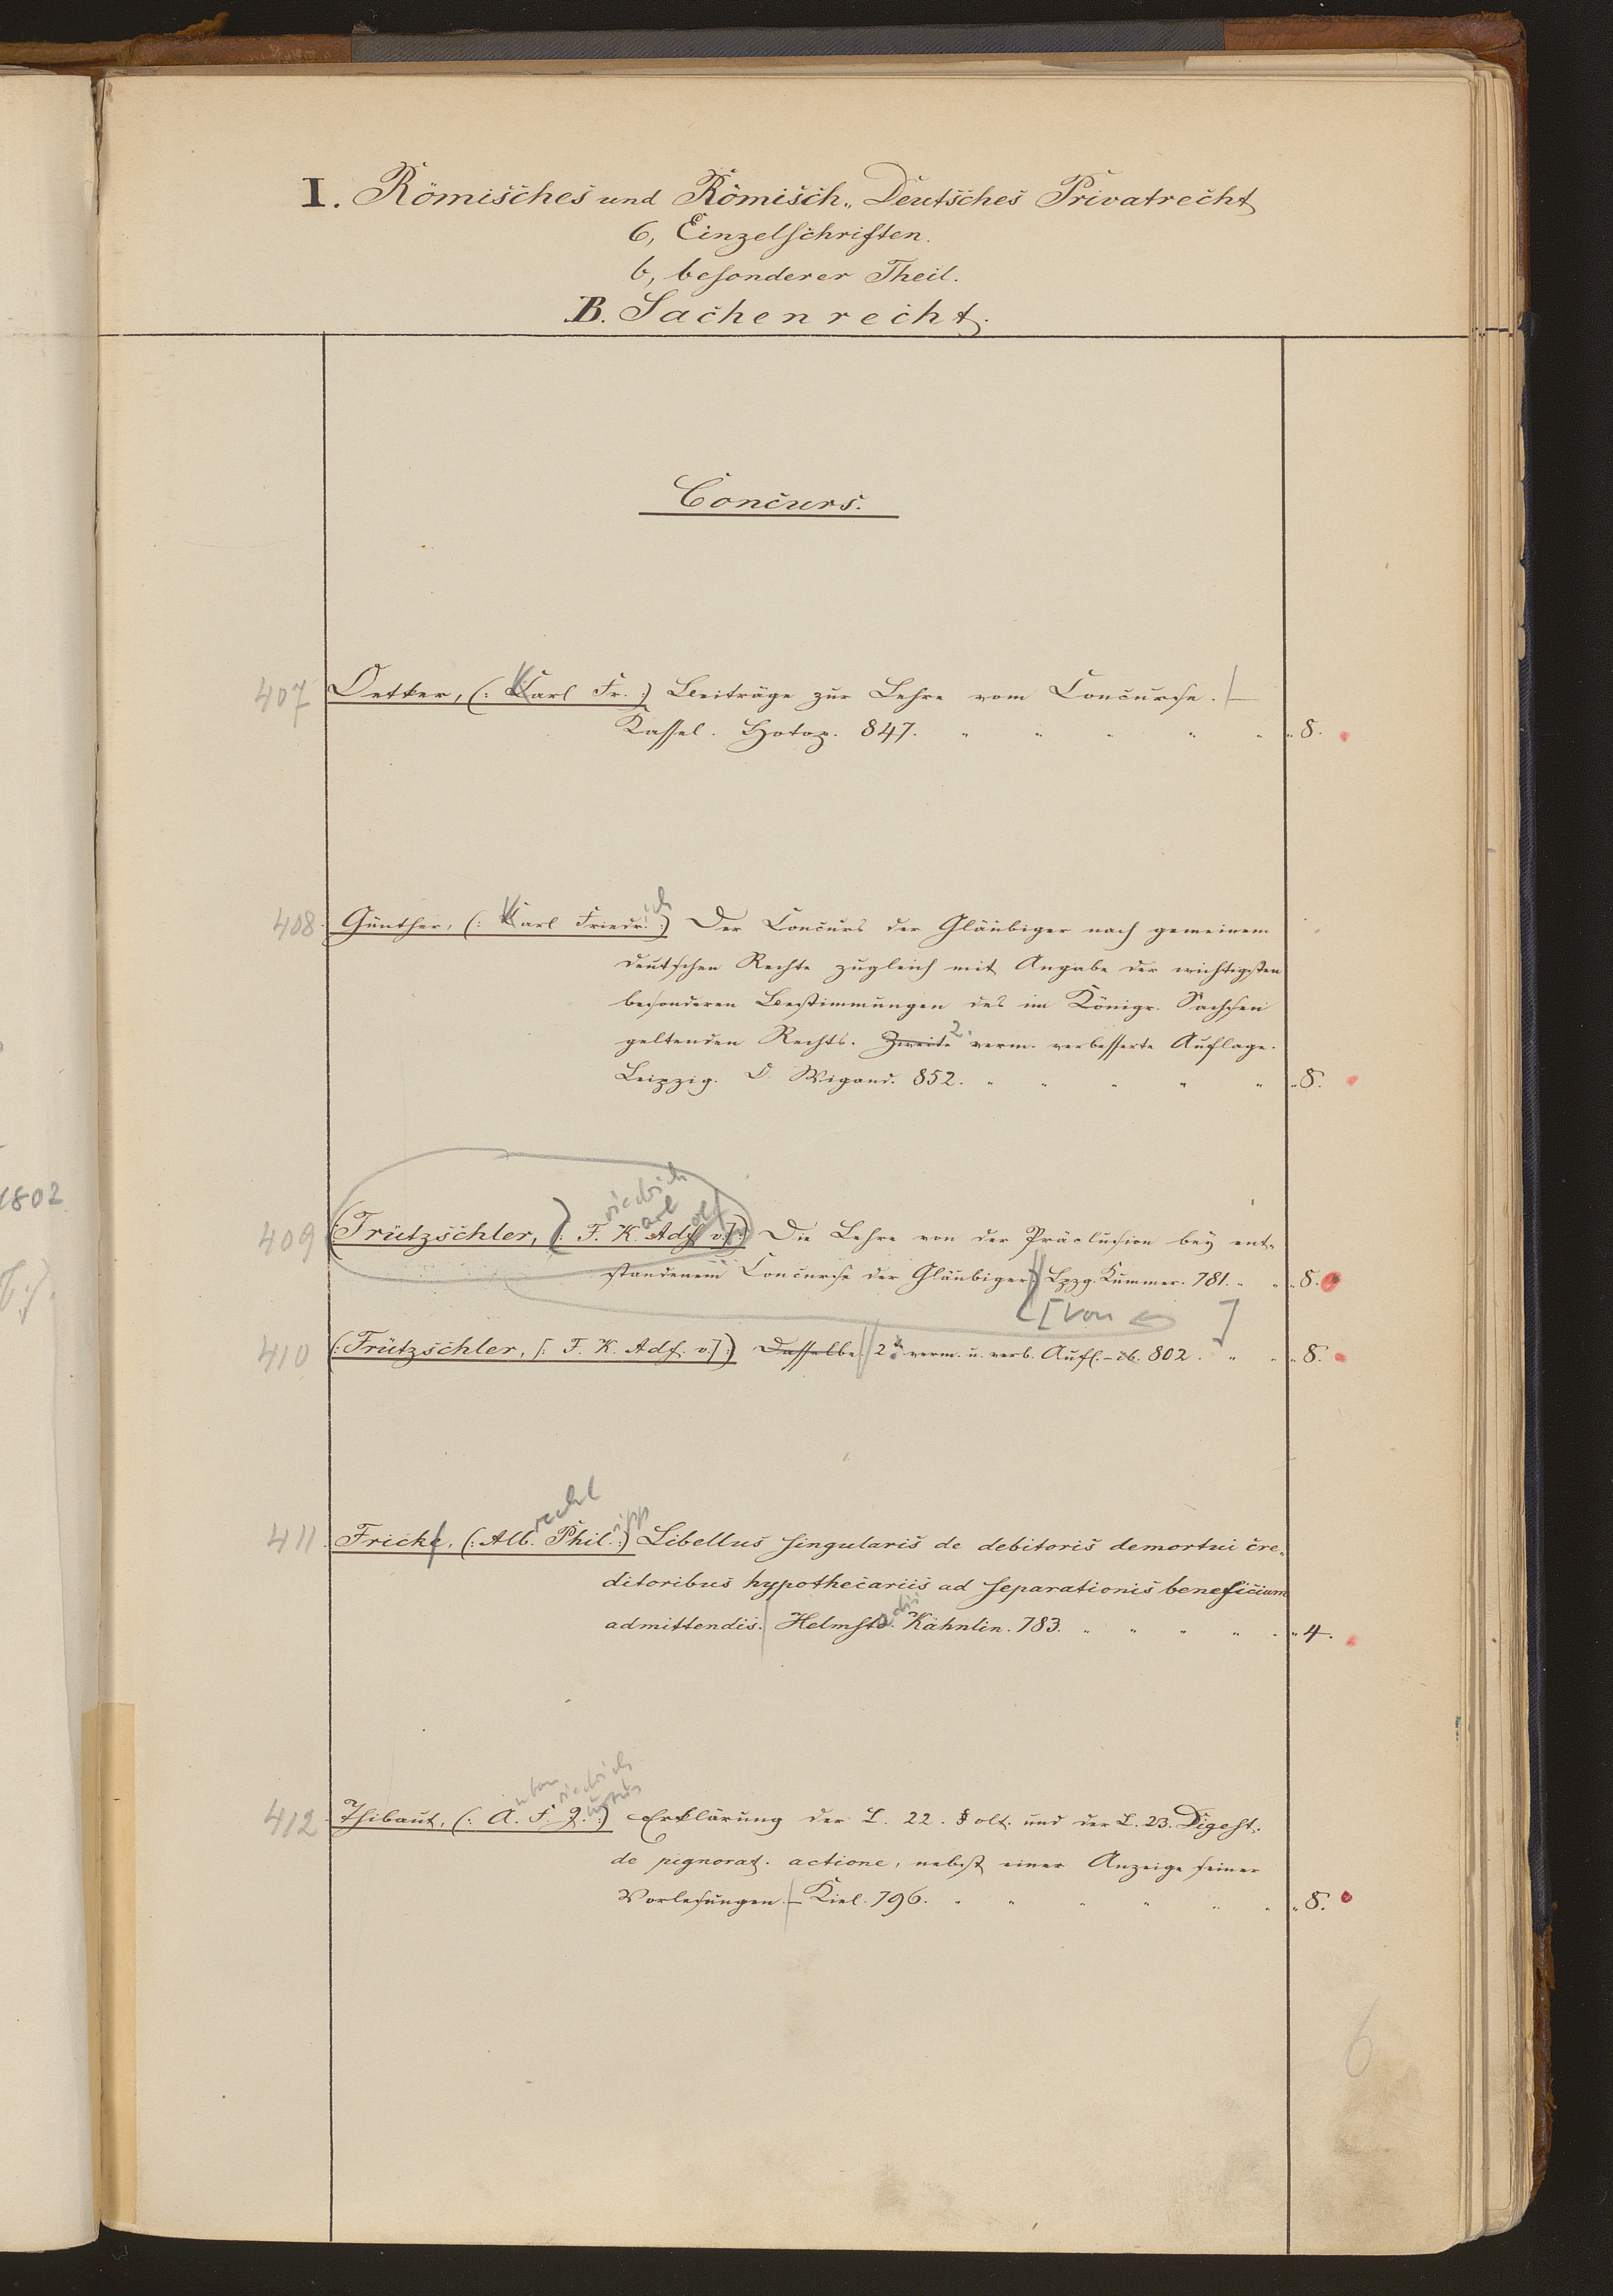 I. Römisches und Römisch„ Deutsches Privatrecht
6, Einzelschriften.
b, besonderer Theil.
B. Sachenrecht.
Concurs.
407 Oetker, (: Karl Fr. :) Beiträge zur Lehre vom Concurse.
Kassel. Hotop. 847. „ „ „ „ „ „ 8.
408 Günther, (: Karl Friedrich :) Der Concurs der Gläubiger nach gemeinem
deutschen Rechte zugleich mit Angabe der wichtigsten
besonderen Bestimmungen des im Königr. Sachsen
geltenden Rechts. Zweite 2. verm. verbesserte Auflage.
Leipzig. O Wigand. 852. „ „ „ „ „ „ 8.
1802
riedrich arl olf
409 (: Trützschler, (: F. K. Adf v.] :) Die Lehre von der Präclusion bey ent„
standenem Concurse der Gläubiger :) Lpzg. Kummer. 781. „ „ „ 8.
[von ]
410 (: Trützschler, [: F. K. Adf. v.] :) Dasselbe. 2te verm. u. verb. Aufl. – ib. 802. „ „ „ 8.
recht ipp
411 Fricke, (: Alb. Phil. :) Libellus singularis de debitoris demortui cre„
ditoribus hypothecariis ad separationis beneficium
admittendis. Helmstadii Kühnlin. 783. „ „ „ „ „ „ 4.
nton riedrich ustus
412 Thibaut, (: A. F. J. :) Erklärung der L. 22. § olt. und der L. 23. Digest.
de pignorat. actione, nebst einer Anzeige seiner
Vorlesungen. – Kiel. 796. „ „ „ „ „ „ „ 8.
6